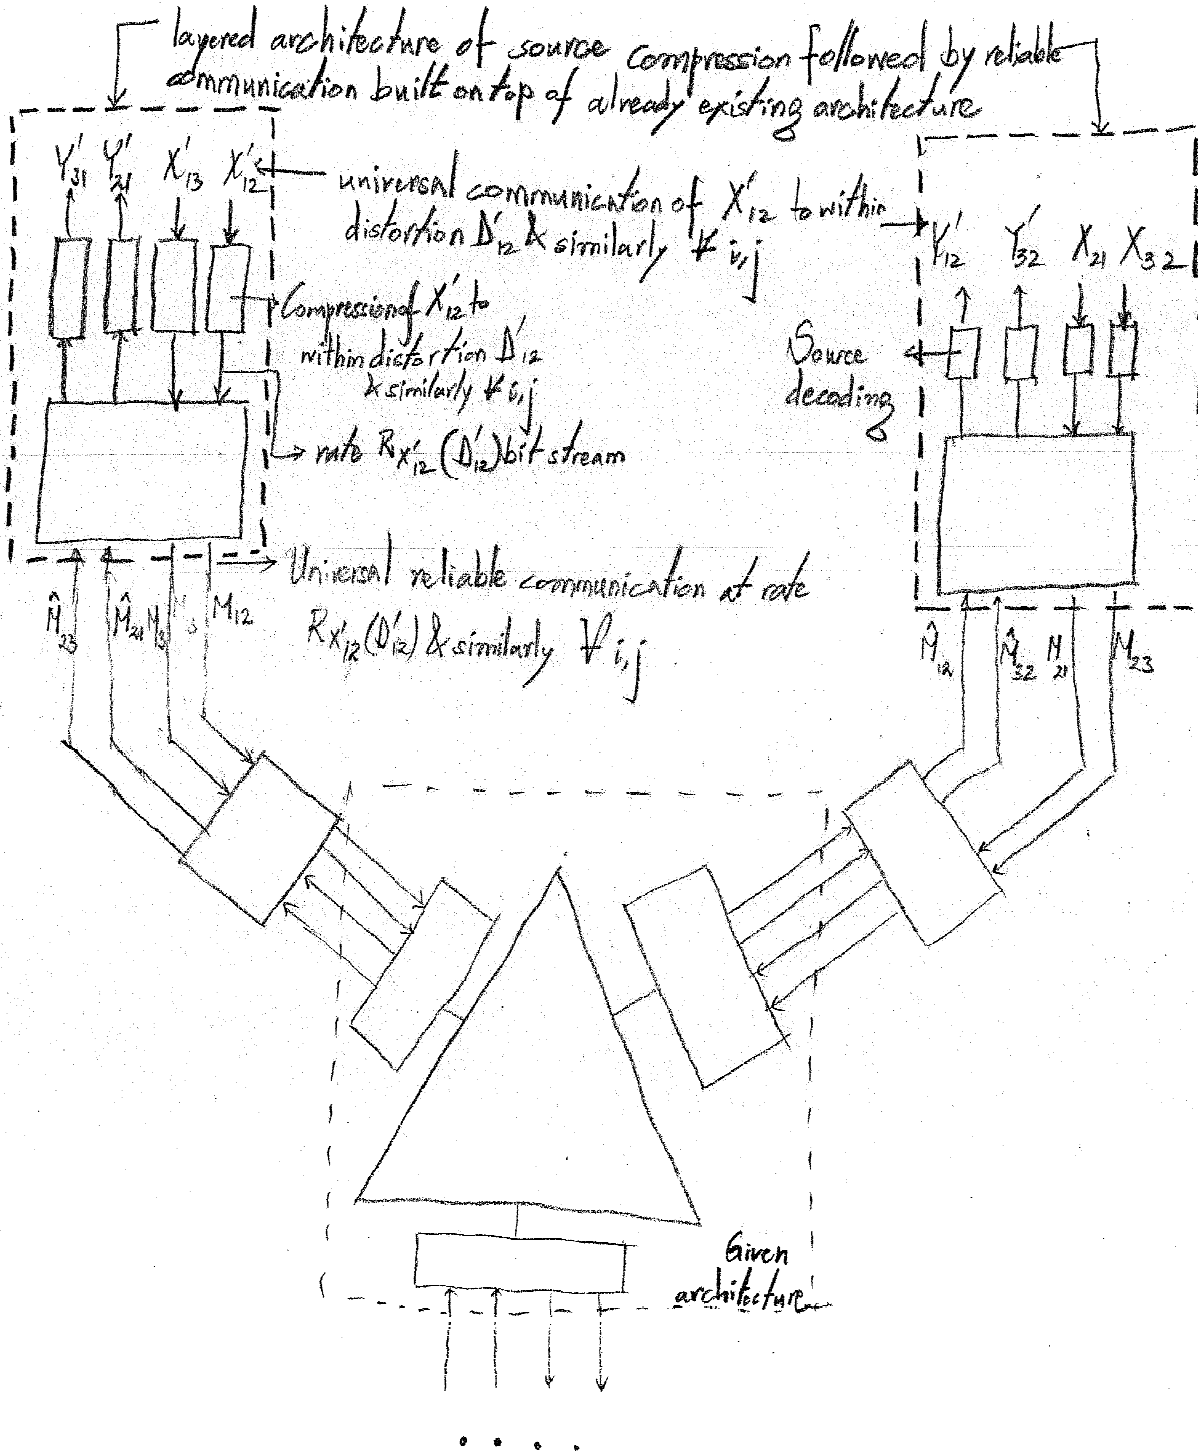 layered architecture of source compression followed by reliable
communication built on top of already existing architecture
Y'31 Y'21 X'13 X'12
universal communication of X'12 to within
distortion D'12 & similarly ∀ i,j
Y'12 Y'32 X21 X32
Compression of X'12 to
within distortion D'12
& similarly ∀ i,j
Source
decoding
rate R_X'12 (D'12) bit stream
Universal reliable communication at rate
R_X'12 (D'12) & similarly ∀ i,j
M̂23 M̂21 M12
M̂12 M̂32 M21 M23
Given
architecture